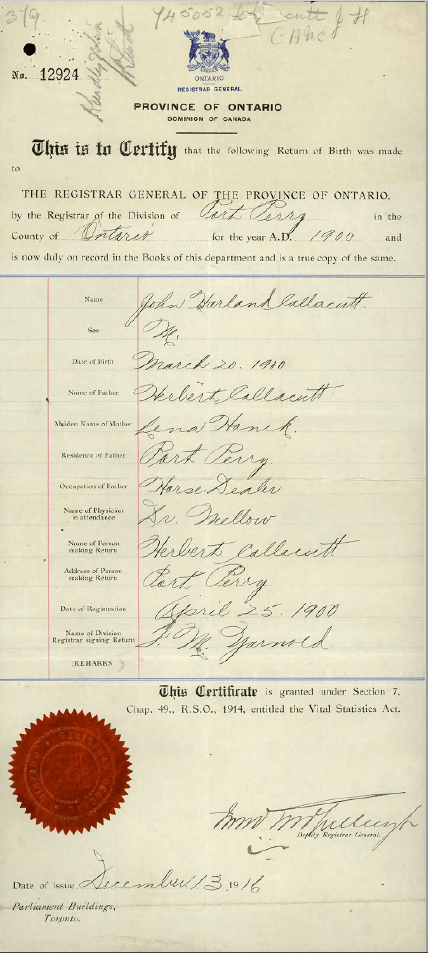 379
745052
C A M C
Kindly return
No. 12924
ONTARIO
REGISTRAR GENERAL
PROVINCE OF ONTARIO
DOMINION OF CANADA
This is to Certify that the following Return of Birth was made
to
THE REGISTRAR GENERAL OF THE PROVINCE OF ONTARIO,
by the Registrar of the Division of Port Perry in the
County of Ontario for the year A.D. 1900 and
is now duly on record in the Books of this department and is a true copy of the same.
Name John Harland Callacutt
Sex M.
Date of Birth March 20. 1900
Name of Father Herbert Callacutt
Maiden Name of Mother Lena Honck.
Residence of Father Port Perry.
Occupation of Father Horse Dealer
Name of Physician in attendance Dr. Mellow
Name of Person making Return Herbert Callacutt
Address of Person making Return Port Perry
Date of Registration April 25. 1900
Name of Division Registrar signing Return J. M. Yarnold
REMARKS
This Certificate is granted under Section 7,
Chap. 49., R.S.O., 1914, entitled the Vital Statistics Act.
Deputy Registrar General.
Date of issue December 13, 1916
Parliament Buildings,
Toronto.